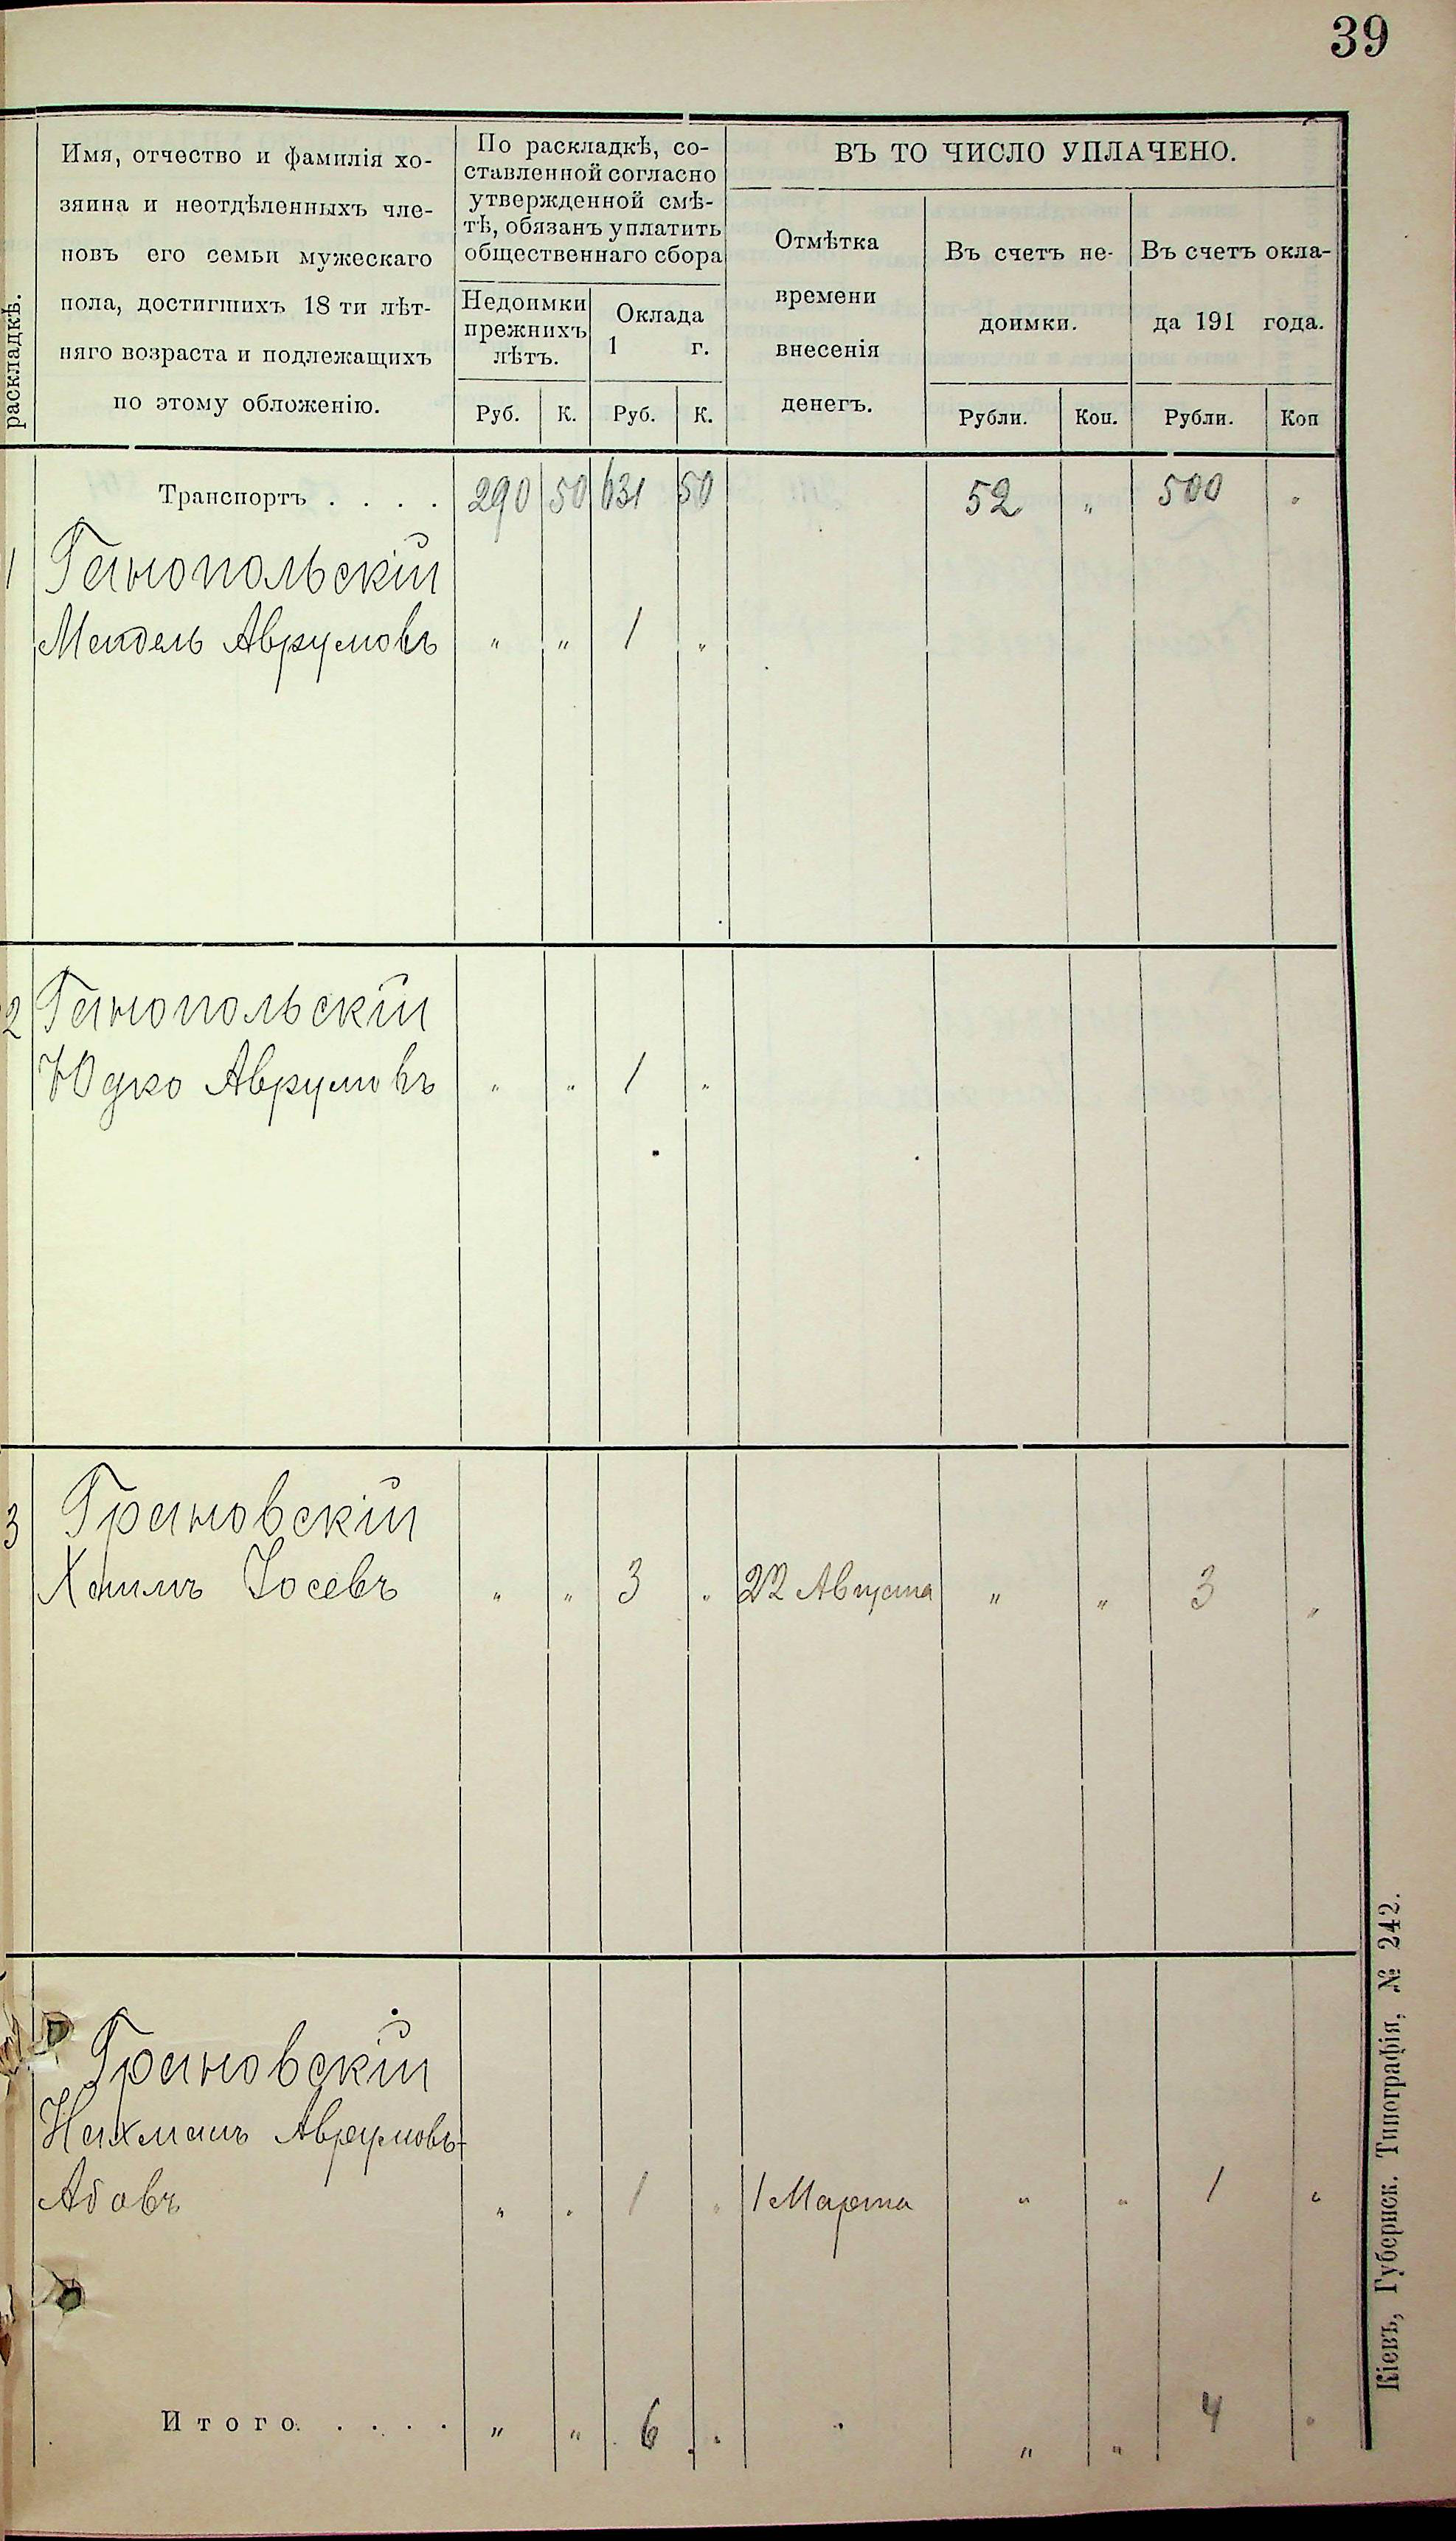 39
раскладкѣ.
Имя, отчество и фамилія хо-
зяина и неотдѣленныхъ чле-
новъ его семьи мужескаго
пола, достигшихъ 18 ти лѣт-
няго возраста и подлежащихъ
по этому обложенію.
По раскладкѣ, со-
ставленной согласно
утвержденной смѣ-
тѣ, обязанъ уплатить
общественнаго сбора
Недоимки
прежнихъ
лѣтъ.
Оклада
1 г.
ВЪ ТО ЧИСЛО УПЛАЧЕНО.
Отмѣтка
времени
внесенія
денегъ.
Въ счетъ не-
доимки.
Въ счетъ окла-
да 191 года.
Руб. К. Руб. К. Рубли. Коп. Рубли. Коп
Транспортъ . . . . 290 50 631 50 52 „ 500 „
1 Ганопольскій
Мендель Аврумовъ „ „ 1 „
2 Ганопольскій
Юдко Аврумовъ „ „ 1 „
3 Грановскій
Хаимъ Іосевъ „ „ 3 „ 22 Августа „ „ 3 „
Грановскій
Нахманъ Аврумовъ-
Абовъ „ „ 1 „ 1 Марта „ „ 1 „
Итого. . . . . „ „ 6 „ „ „ 4 „
Кіевъ, Губернск. Типографія, № 242.